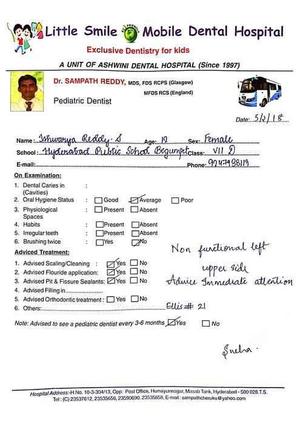 Little Smile Mobile Dental Hospital
Exclusive Dentistry for kids
A UNIT OF ASHWINI DENTAL HOSPITAL (Since 1997)
Dr. SAMPATH REDDY, MDS, FDS RCPS (Glasgow)
MFDS RCS (England)
Pediatric Dentist
Date: 5/2/18
Name: Ishwarya Reddy.S Age: 10 Sex: Female
School: Hyderabad Public School Begumpet Class: VII D
E-mail: Phone:
On Examination:
1. Dental Caries in :
(Cavities)
2. Oral Hygiene Status : Good Average Poor
3. Physiological : Present Absent
Spaces
4. Habits : Present Absent
5. Irregular teeth : Present Absent
6. Brushing twice : Yes No
Non funtional left
upper side
Adviced Treatment:
1. Advised Scaling/Cleaning : Yes No
2. Advised Flouride application: Yes No
3. Advised Pit & Fissure Sealants: Yes No
Advice Immediate attention
4. Advised Filling in
5. Advised Orthodontic treatment : Yes No
6. Others: Ellis # 21
Note: Advised to see a pediatric dentist every 3-6 months Yes No
Sneha.
Hospital Address: H.No. 10-3-304/13, Opp. Post Office, Humayunnagar, Masab Tank, Hyderabad - 500 028 T.S.
Tel: (C) 23537612, 23535656, 23590690, 23535658, E-mail: sampathcheruku@yahoo.com